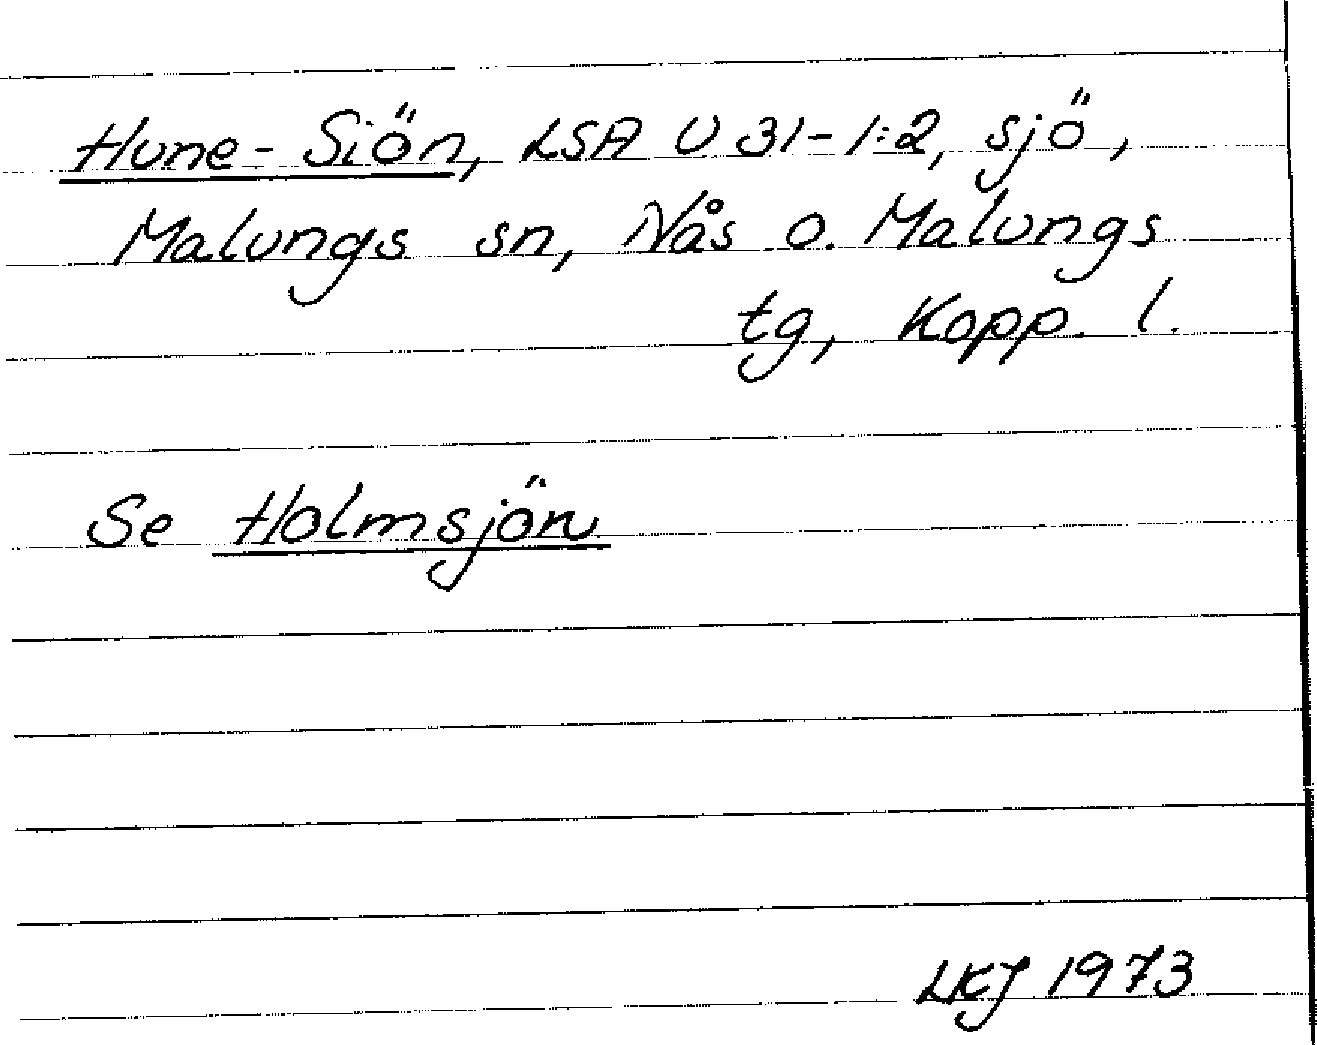 Hune-Siön, LSA U 31-1:2, sjö,
Malungs sn, Nås o. Malungs
tg, Kopp. l.
Se Holmsjön
LKJ 1973